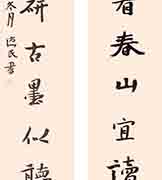 看春山宜讀
研古墨似聽
冬月